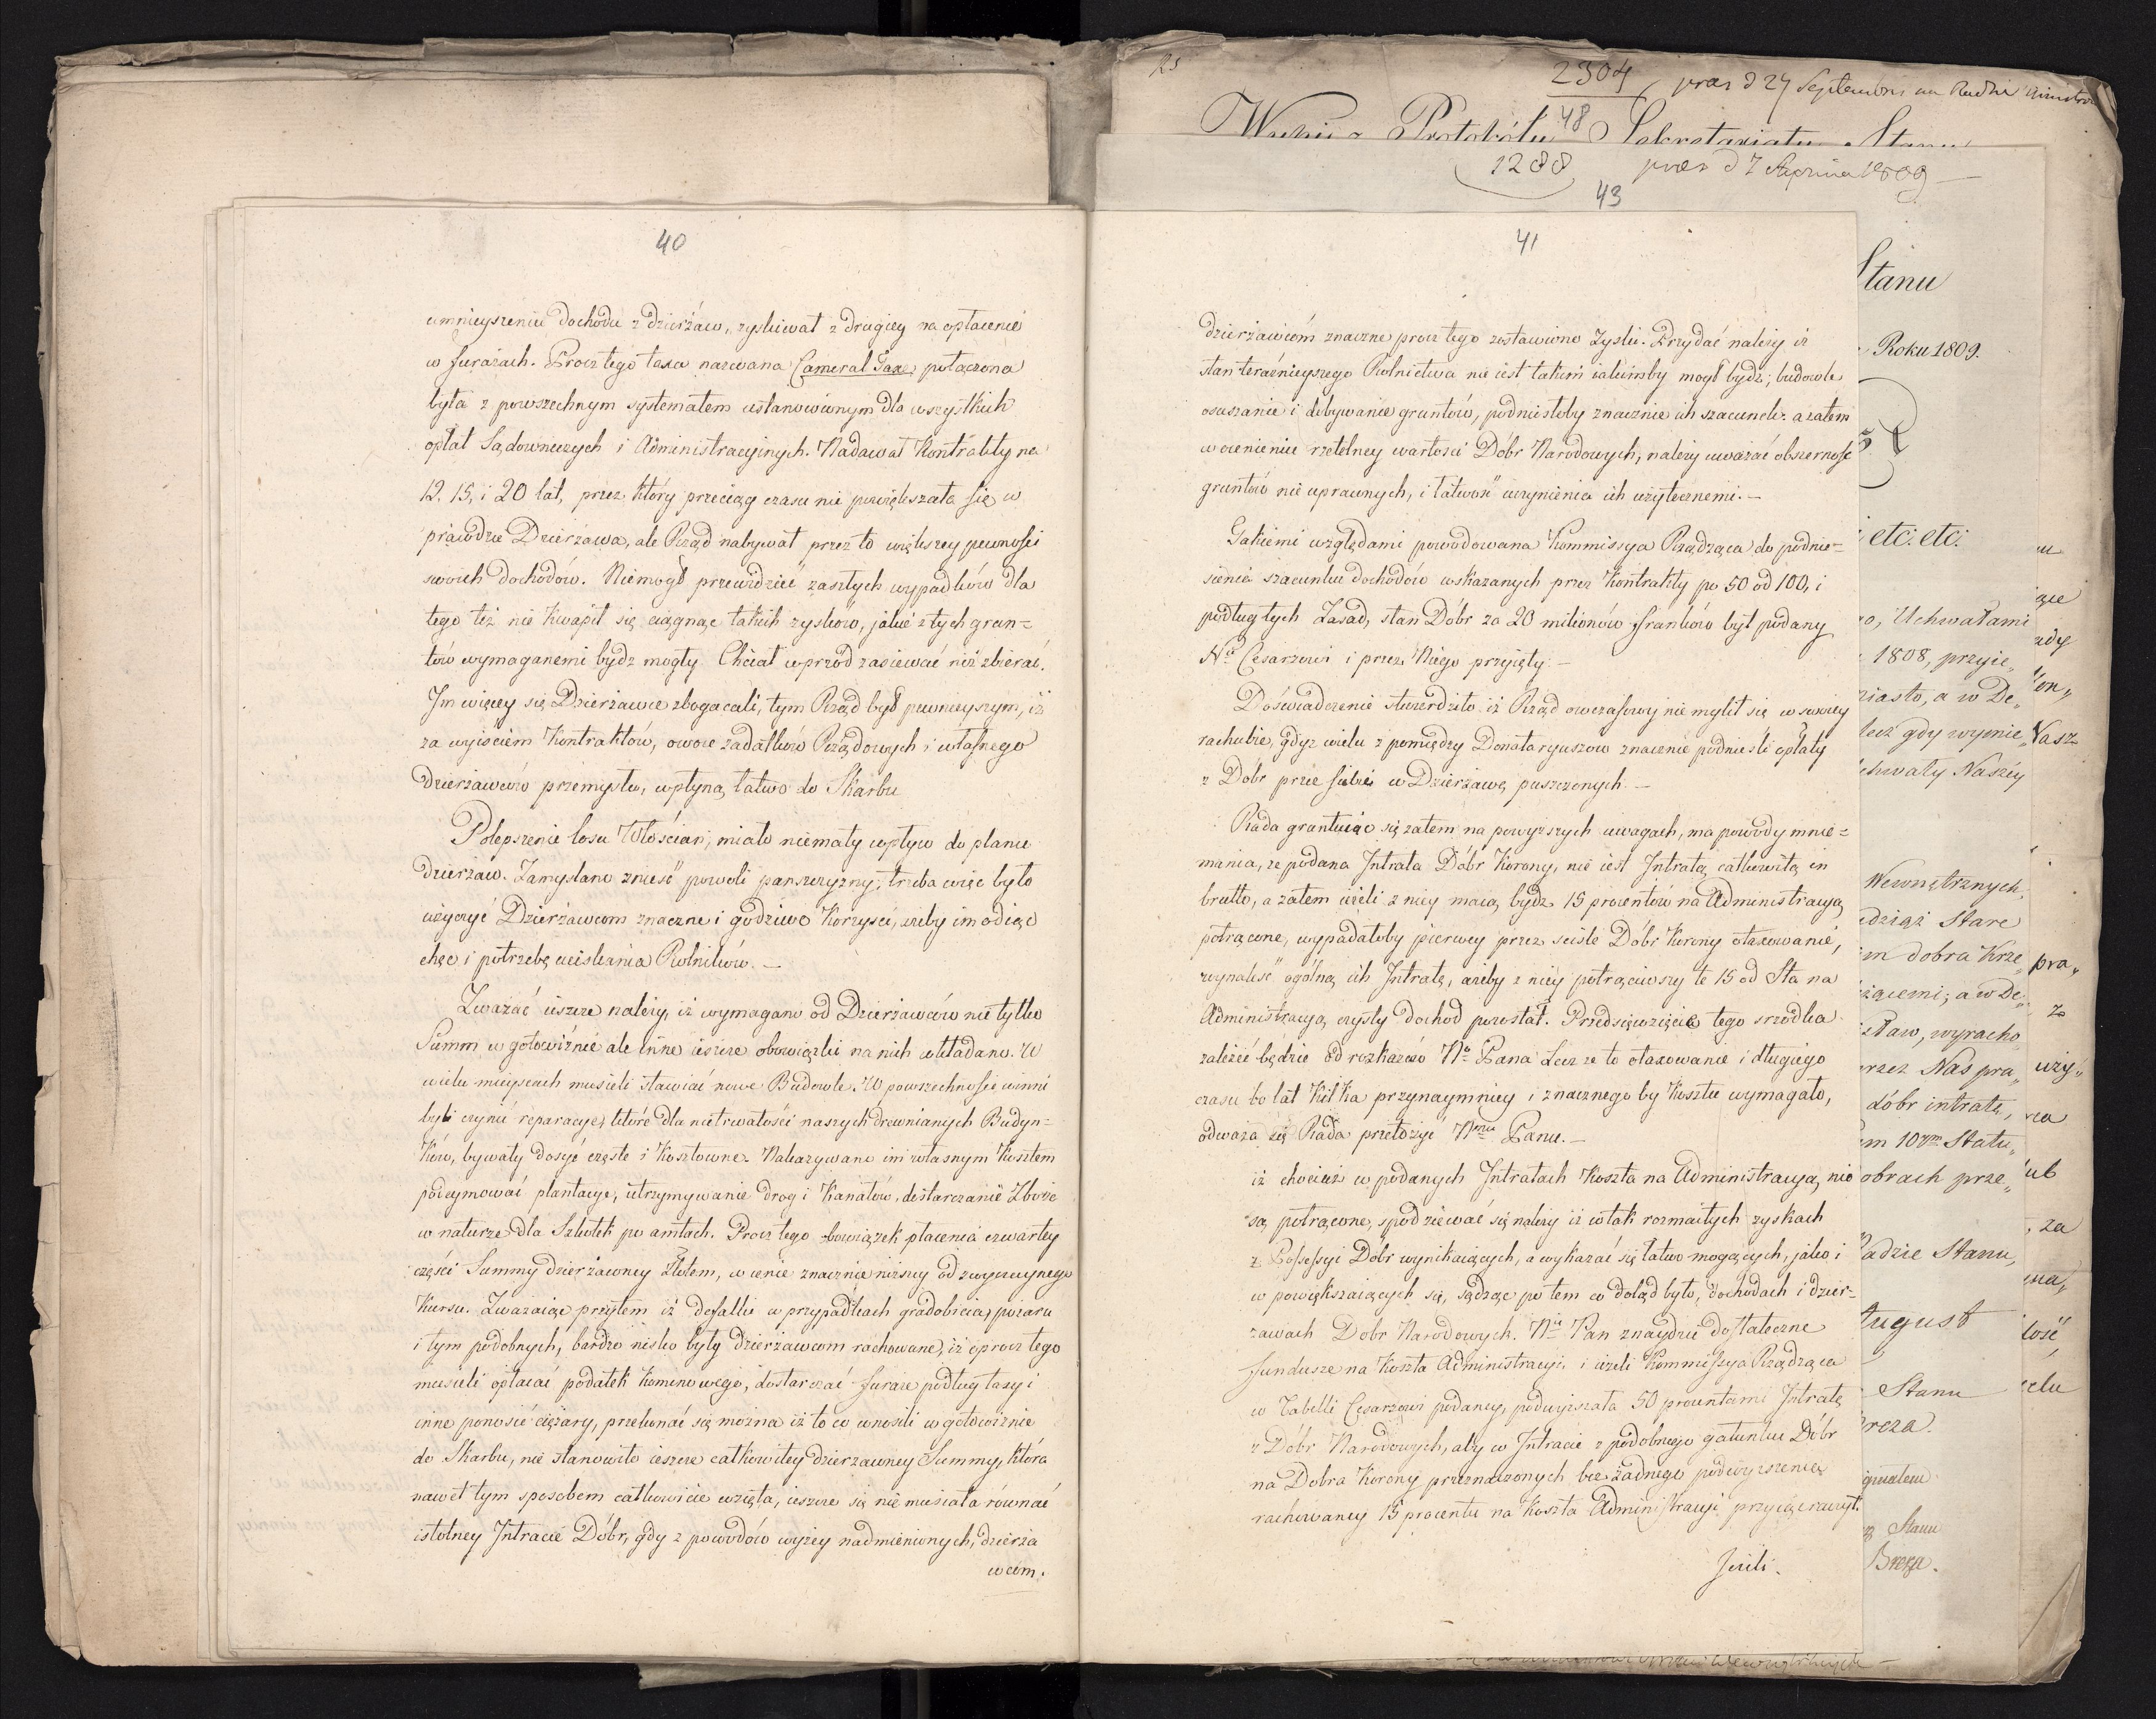 40
umnieyszeniu dochodu z dzierżaw, zyskiwał z drugiey na opłacenie
w furażach. Procz tego taxa nazwana Cameral Taxe, połączona
była z powszechnym systematem ustanowionym dla wszystkich
opłat Sądowniczych i Administracyjnych. Nadawał Kontrakty na
12. 15, i 20 lat, przez który przeciąg czasu nie powiększała się w
prawdzie Dzierżawa, ale Rząd nabywał przez to większey pewności
swoich dochodów. Niemogł przewidzieć zaszłych wypadków dla
tego też nie kwapił się ciągnąc takich zysków, jakie z tych grun=
tów wymaganemi bydz mogły. Chciał wprzod zasiewać niż zbierać.
Im więcey się Dzierżawce zbogacali, tym Rząd był pewnieyszym, iż
za wyjściem Kontraktów, owoce zadatków Rządowych i własnego
Dzierżawców przemysłu, wpłyną łatwo do Skarbu
Polepszenie losu Włościan, miało niemały wpływ do planu
dzierżaw. Zamyślano znieść powoli panszczyzny, trzeba więc było
użyczyć Dzierżawcom znaczne i godziwe Korzyści, ażeby im odiąć
chęć i potrzebę uciskania Rolników. —
Zważać ieszcze należy, iż wymagano od Dzierżawców nie tylko
Summ w gotowiźnie ale inne ieszcze obowiązki na nich wkładano. W
wielu mieyscach musieli stawiać nowe Budowle. W powszechności winni
byli czynić reparacye, które dla nietrwałości naszych drewnianych Budyn=
Ków, bywały dosyć częste i Kosztowne. Nakazywano im własnym Kosztem
poieymować plantacye, utrzymywanie drog i Kanałów, dostarczanie Zboże
w naturze dla Szkółek po amtach. Procz tego obowiązek płacenia czwartey
części Summy dzierżawney Złotem, w cenie znacznie niższey od zwyczaynego
Kursu. Zważaiąc przytem iż defalki w przypadkach gradobicia, pożaru
i tym podobnych, bardzo nisko były dzierżawcom rachowane, iż oprocz tego
musieli opłacać podatek Kominowego, dostarczać furaże podług taxy i
inne ponosić ciężary, przekonać się można iż to co wnosili w gotowiźnie
do Skarbu, nie stanowiło ieszcze całkowitey dzierżawney Summy, która
nawet tym sposobem całkowicie wzięta, ieszcze się nie musiała równać
istotney Intracie Dóbr, gdy z powodów wyżey nadmienionych, dzierża
wcom.
25
2304 pras d 27 Septembris na Radzie
48
Protokółu Sekretariatu Stanu
1288 pras d 7 Aprilia 1809 —
43
41
dzierżawcóm znaczne procz tego zostawiono Zyski. Przydać należy iż
stan teraźnieyszego Rolnictwa nie iest takim iakimby mogł bydz; budowle
osuszanie i dobywanie gruntów, podniosłoby znacznie ich szacunek: a zatem
w ocenieniu rzetelney wartości Dóbr Narodowych, należy uważać obszerność
gruntów nie uprawnych, i łatwość uczynienia ich użytecznemi. —
Takiemi względami powodowana Kommissya Rządząca do podnie=
sienia szacunku dochodów wskazanych przez Kontrakty po 50 od 100, i
podług tych Zasad, stan Dóbr za 20 milionów Franków był podany
N. Cesarzowi i przez Niego przyjęty. —
Doświadczenie stwierdziło iż Rząd owczasowy nie mylił się w swoiey
rachubie, gdyż wielu z pomiędzy Donataryuszow znacznie podnieśli opłaty
z Dóbr prze siebie w Dzierżawę puszczonych. —
Rada gruntuiąc się zatem na powyższych uwagach, ma powody mnie=
mania, że podana Intrata Dóbr Korony, nie iest Intratą całkowitą in
brutto, a zatem ieżeli z niey maią bydz 15 procentów na Administracyą
potrącone, wypadałoby pierwey przez scisłe Dóbr Korony otaxowanie,
wynaleść ogólną ich Intratę, ażeby z niey potrąciwszy te 15 od Sta na
Administracyą, czysty dochod pozostał. Przedsięwzięcie tego srzodka
zależeć będzie od rozkazów N. Pana Lecz że to otaxowanie i długiego
czasu bo lat Kilka przynaymniey i znacznego by Kosztu wymagało,
odważa się Rada przełożyć N. Panu. —
iż chociaż w podanych Intratach Koszta na Administracyą, nie
są potrącone, spodziewać się należy iż w tak rozmaitych zyskach
z Possessyi Dóbr wynikaiących, a wykazać się łatwo mogących, jako i
w powiększaiących się, sądząc po tem co dotąd było, dochodach i dzier=
żawach Dobr Narodowych. N. Pan znaydzie dostateczne
fundusze na Koszta Administracyi. i ieżeli Kommissya Rządząca
w Tabelli Cesarzowi podaney, podwyższała 50 procentami Intratę
z Dóbr Narodowych, aby w Intracie z podobnego gatunku Dóbr
na Dobra Korony przeznaczonych bez żadnego podwyższenia
rachowaney 15 procentu na Koszta Administracyi przyiąć raczył.
Jeżeli.
Stanu
Roku 1809.
etc: etc:
o, Uchwałami
1808, przyie„
miasto, a w De„
lecz gdy wymie„
chwały Naszey
Wewnętrznych,
dziąż Stare
dobra Krze„
żącemi; a w De„
staw, wyracho„
przez Nas pra„
dóbr intratę,
em 10ym Statu„
obrach prze„
adzie Stanu,
August
Stanu
reza.
Stanu
Breza.
Nasz
pra„
z
uży„
ub
, za
łość,
celu